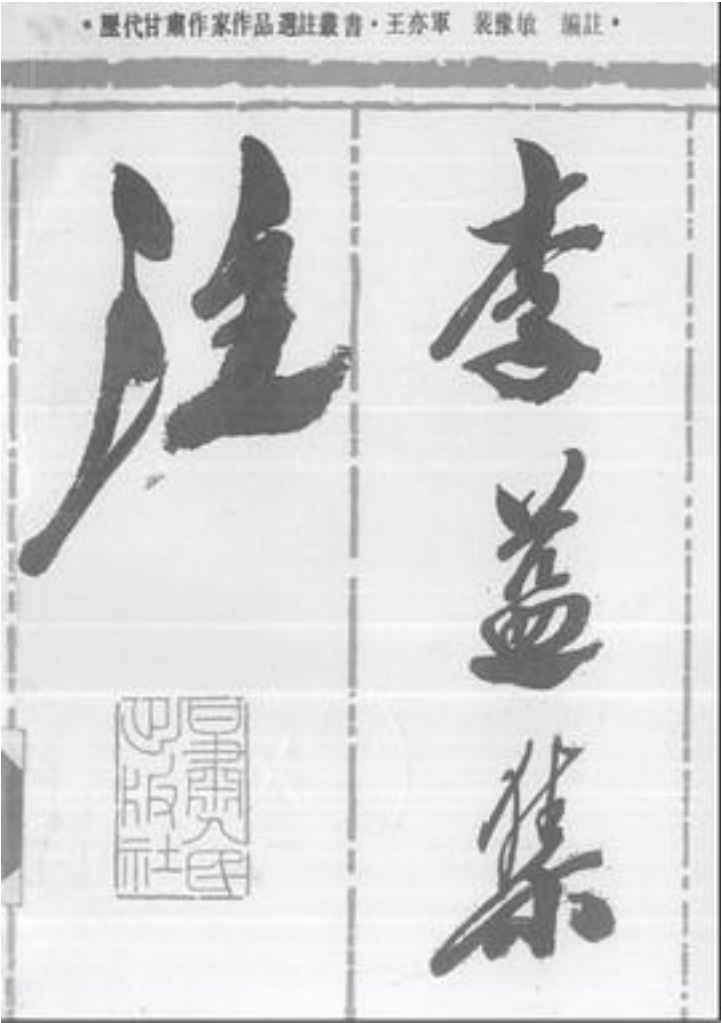 •歷代甘肅作家作品選註叢書•王亦軍 裴豫敏 編註•
李益集
注
甘肅人民
出版社